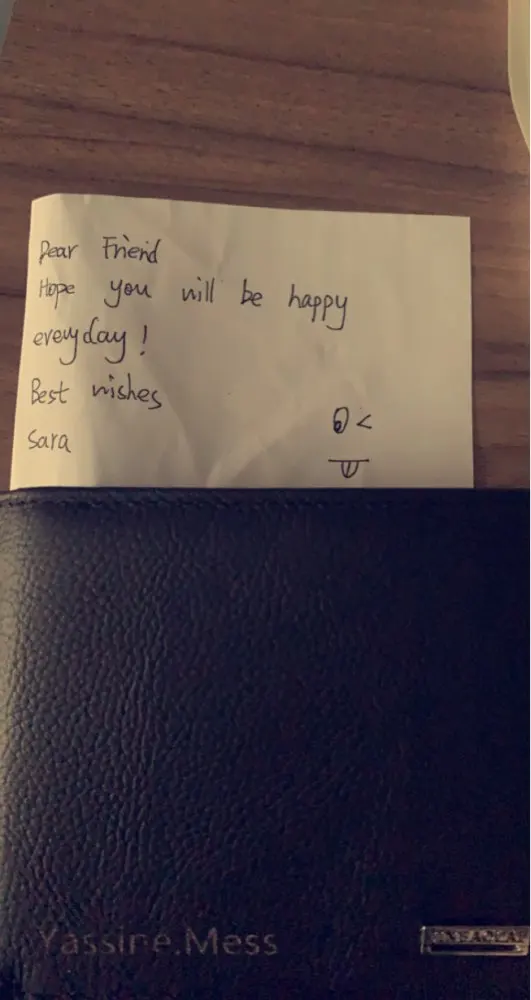 Dear Friend
Hope you will be happy
everyday!
Best wishes
Sara
Yassine.Mess